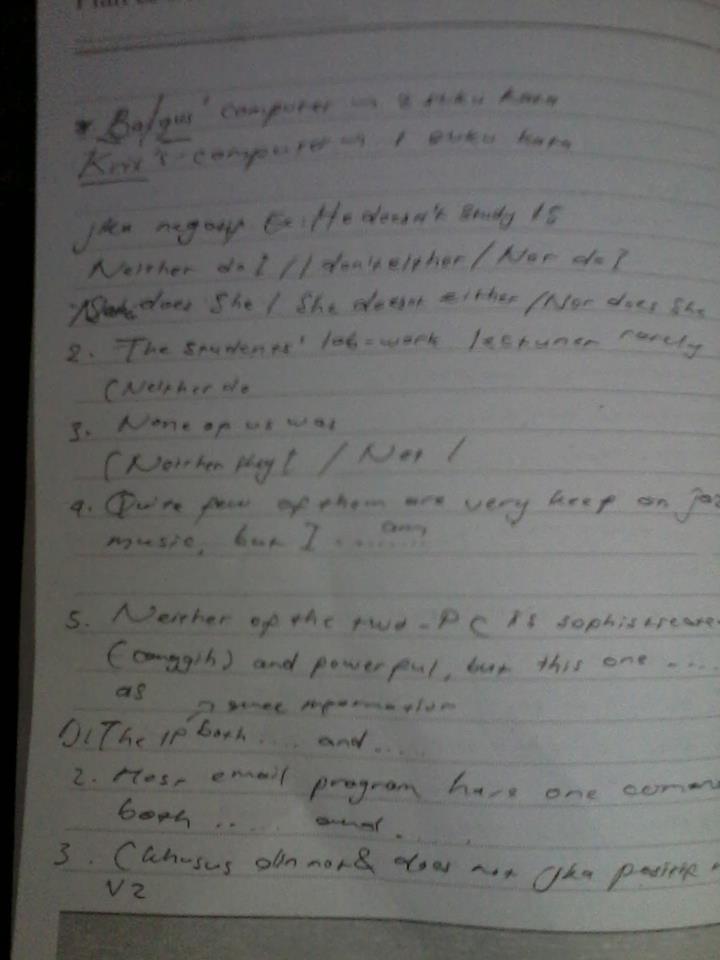 * Ba/gus' computer → 2 suku kata
Krix's computer → 1 suku kata
jika negatip Ex: He doesn't study IS
Neither do I // I don't either / Nor do I
does She / She doesn't either / Nor does She
2. The students' lab-work lecturer rarely
(Neither do
3. None of us was
(Neither they / Nor /
4. Quite few of them are very keep on jaz
music, but I ...am...
5. Neither of the two-PC is sophisticate
(canggih) and powerful, but this one ....
as
D1 The IP both .... and ....
2. Most email program have one coman
both ..... and .....
3. (khusus did not & does not jika positip
V2